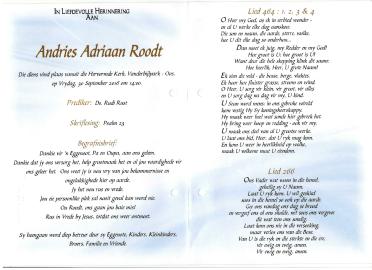 IN LIEFDEVOLLE HERINNERING
AAN
Andries Adriaan Roodt
Die diens vind plaas vanuit die Hervormde Kerk, Vanderbijlpark - Oos,
op Vrydag, 30 September 2016 om 14:00.
Prediker: Ds. Rudi Root
Skriflesing: Psalm 23
Begrafnisbrief:
Dankie vir 'n Eggenoot, Pa en Oupa, soos ons gehad.
Dankie dat jy ons versorg het, help grootmaak het en al jou waardigheid vir
ons gelos het. Ons weet jy is nou vry van jou bekommernisse en
ongelukkighede hier op aarde.
Jy het nou rus en vrede.
Jou nr persoonlike plek sal nooit gevul kan word nie.
Ou Roodt, ons gaan jou baie mis!
Rus in Vrede by Jesus, totdat ons weer ontmoet.
Sy heengaan word diep betreur deur sy Eggenote, Kinders, Kleinkinders,
Broers, Familie en Vriende.
Lied 464 : 1, 2, 3 & 4
O Heer my God, as ek in eerbied wonder -
en al U werke elke dag aanskou:
Die son en maan, die aarde, sterre, wolke,
hoe U dit elke dag so onderhou...
Dan moet ek juig, my Redder en my God!
Hoe groot is U, hoe groot is U!
Want deur die hele skepping klink dit saam:
Hoe heerlik, Heer, U grote Naam!
Ek sien die veld - die bome, berge, vlaktes.
Ek hoor hoe fluister grasse, strome en wind.
O Heer, U sorg vir klein, vir groot, vir alles
en U sorg dag na dag vir my, U kind.
U Seun word mens in ons gebroke wêreld
kom vestig Hy Sy koningsheerskappy.
Hy maak weer heel wat sonde hier gebreek het.
Hy bring weer hoop en redding - ook vir my.
U maak ons deel van al U grootse werke.
U laat ons bid, Heer, dat U ryk mag kom.
En kom U weer in heerlikheid op wolke,
waak U volkome met U skare om.
Lied 266
Ons Vader wat woon in die hemel,
geheilig sy U Naam.
Laat U ryk kom. U wil geskied
soos in die hemel so ook op die aarde.
Gee ons vandag ons dag se brood
en vergeef ons al ons skulde, net soos ons vergewe
die wat teen ons sondig.
Laat kom ons nie in die versoeking,
maar verlos ons van die bose.
Van U is die ryk en die sterkte en die eer,
vir ewig en ewig.
Amen.